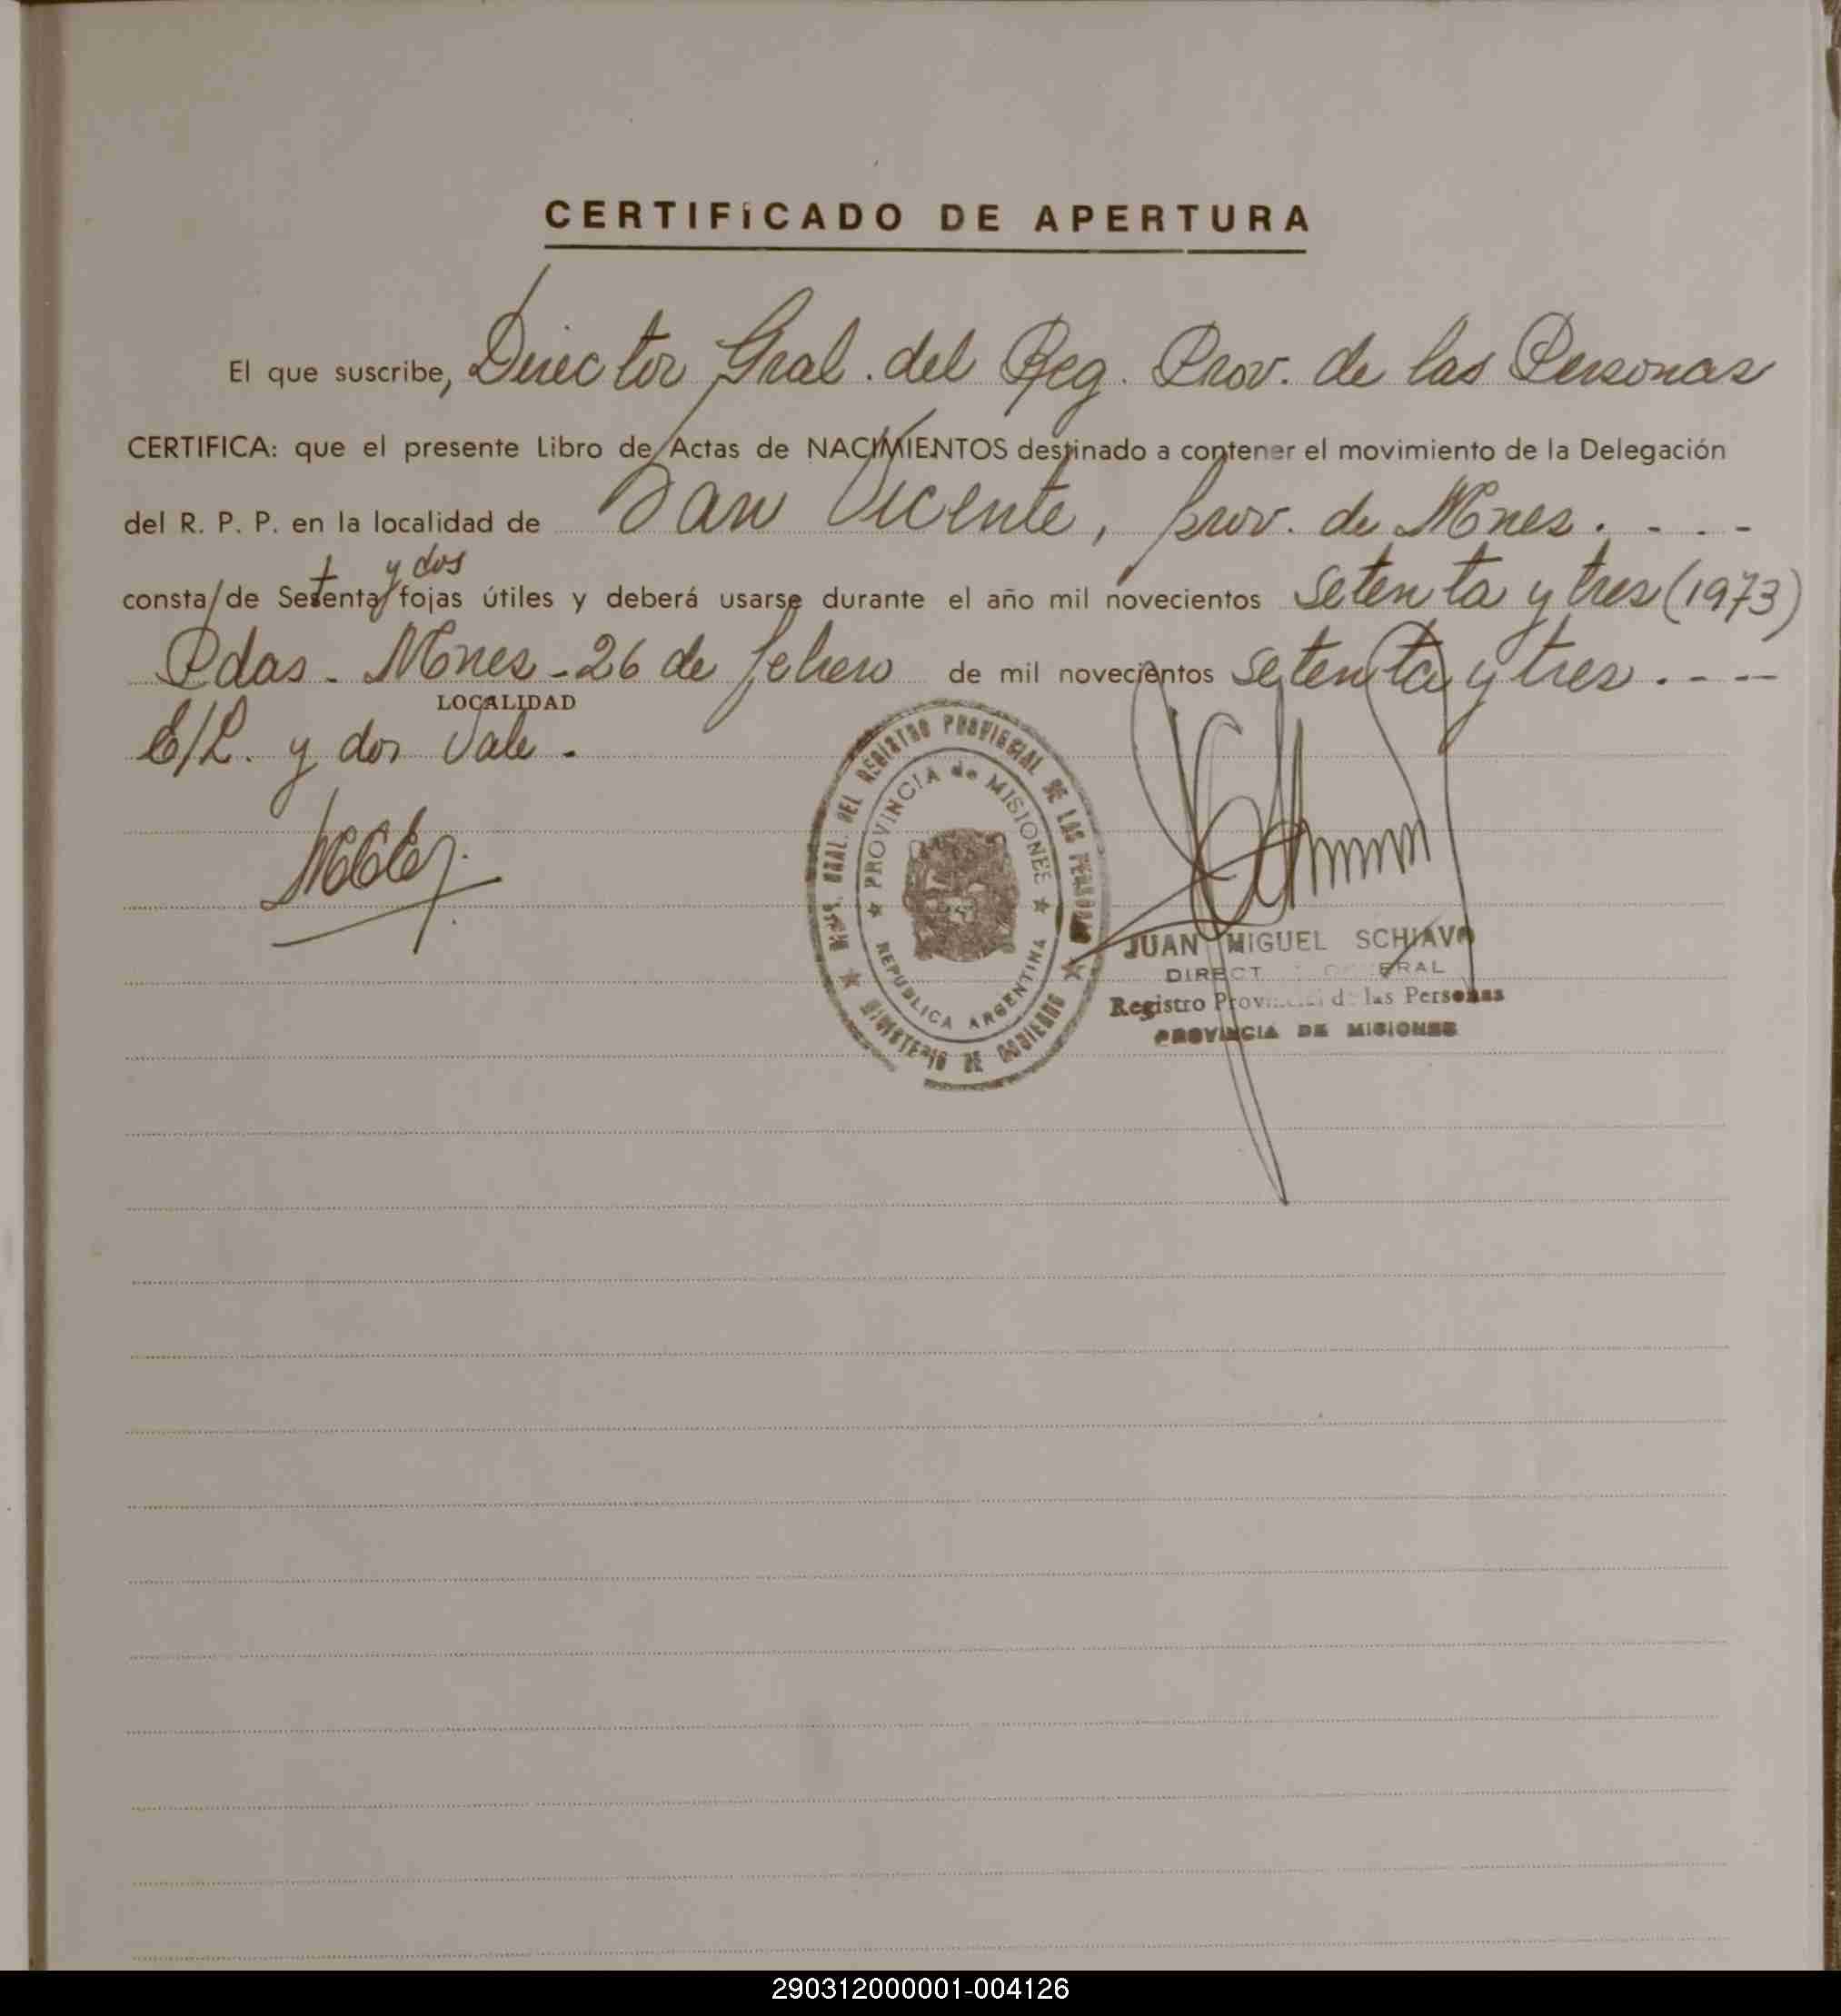 CERTIFICADO DE APERTURA
El que suscribe, Director Gral. del Reg. Prov. de las Personas
CERTIFICA: que el presente Libro de Actas de NACIMIENTOS destinado a contener el movimiento de la Delegación
del R. P. P. en la localidad de San Vicente, prov. de Mnes. - - -
y dos
consta de Setenta fojas útiles y deberá usarse durante el año mil novecientos setenta y tres (1973)
Pdas. Mnes - 26 de febrero de mil novecientos setenta y tres. - - -
LOCALIDAD
E/L. y dos Vale.
DIREC. GRAL. DEL REGISTRO PROVINCIAL DE LAS PERSONAS
PROVINCIA de MISIONES
REPUBLICA ARGENTINA
MINISTERIO DE GOBIERNO
JUAN MIGUEL SCHIAVO
DIRECTOR GENERAL
Registro Provincial de las Personas
PROVINCIA DE MISIONES
290312000001-004126